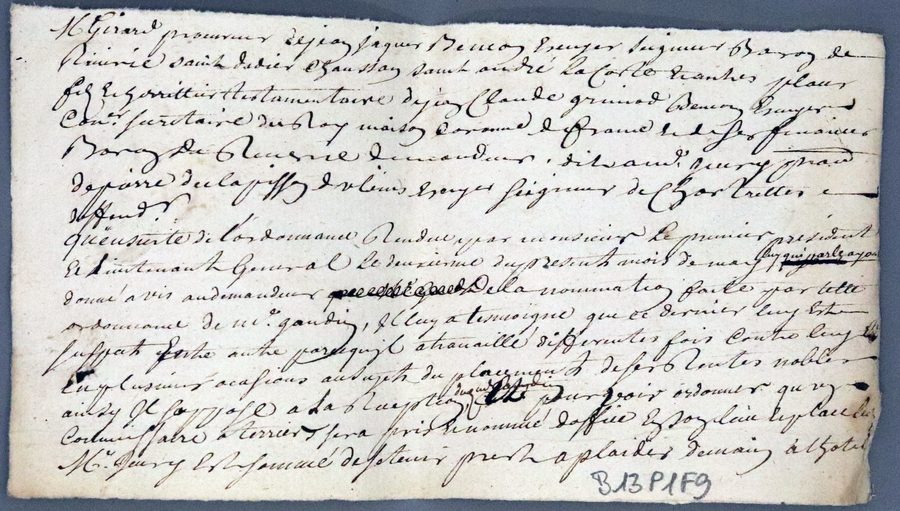 Mr Girard procureur de jean jaques Bencon Escuyer Seigneur Baron de
Riverie saint didier Chaussan saint andré la Coste et autres places
fils et herittier testamentaire de jean Claude grimod Bencon Escuyer
Conr secrétaire du Roy maison Couronne de france et de ses finances
Baron de Riverie demandeur, dit a mr
de pierre de Escuyer Seigneur de
deffendr
qu'en suitte de l'ordonnance Rendue par monsieur Le premier président
et Lieutenant General Le deuxieme du present mois de may luy qui parle ayant
donné avis au demandeur de la nomination faite par telle
ordonnance de mr gaudin, Il luy a tesmoigné que ce dernier luy Est
suspect Entre autre parcequil a travaillé differentes fois contre luy Et
En plusieurs ocasions au sujet du placement de ses Rentes nobles
aussy Il s'oppose a la Reception dudit gaudin, pour voir ordonner qu'un
Commissaire a terrier sera pris et nommé d'office En son lieu et place
Mr Est sommé de se tenir prest a plaider demain à l'hotel
B13P1F9